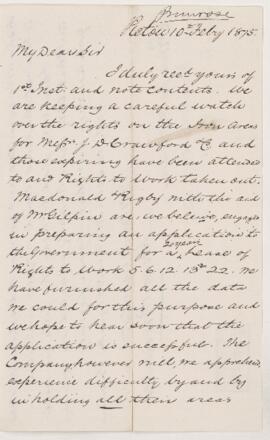 Primrose
Pictou 10th Feby 1875.
My Dear Sir
I duly recd yours of
1st Inst. and note contents. We
are keeping a careful watch
over the rights on the Iron Areas
for Messrs J D Crawford & Co and
those expiring have been attended
to and Rights to Work taken out.
Macdonald & Rigby with the aid
of Mr Gilpin are, we believe, engaged
in preparing an application to
the Government for a 20 years lease of
Rights to Work 5. 6. 12. 13 & 22. We
have furnished all the data
we could for this purpose and
we hope to hear soon that the
application is successful. The
Company however will, we apprehend,
experience difficulty by and by
in holding all their areas